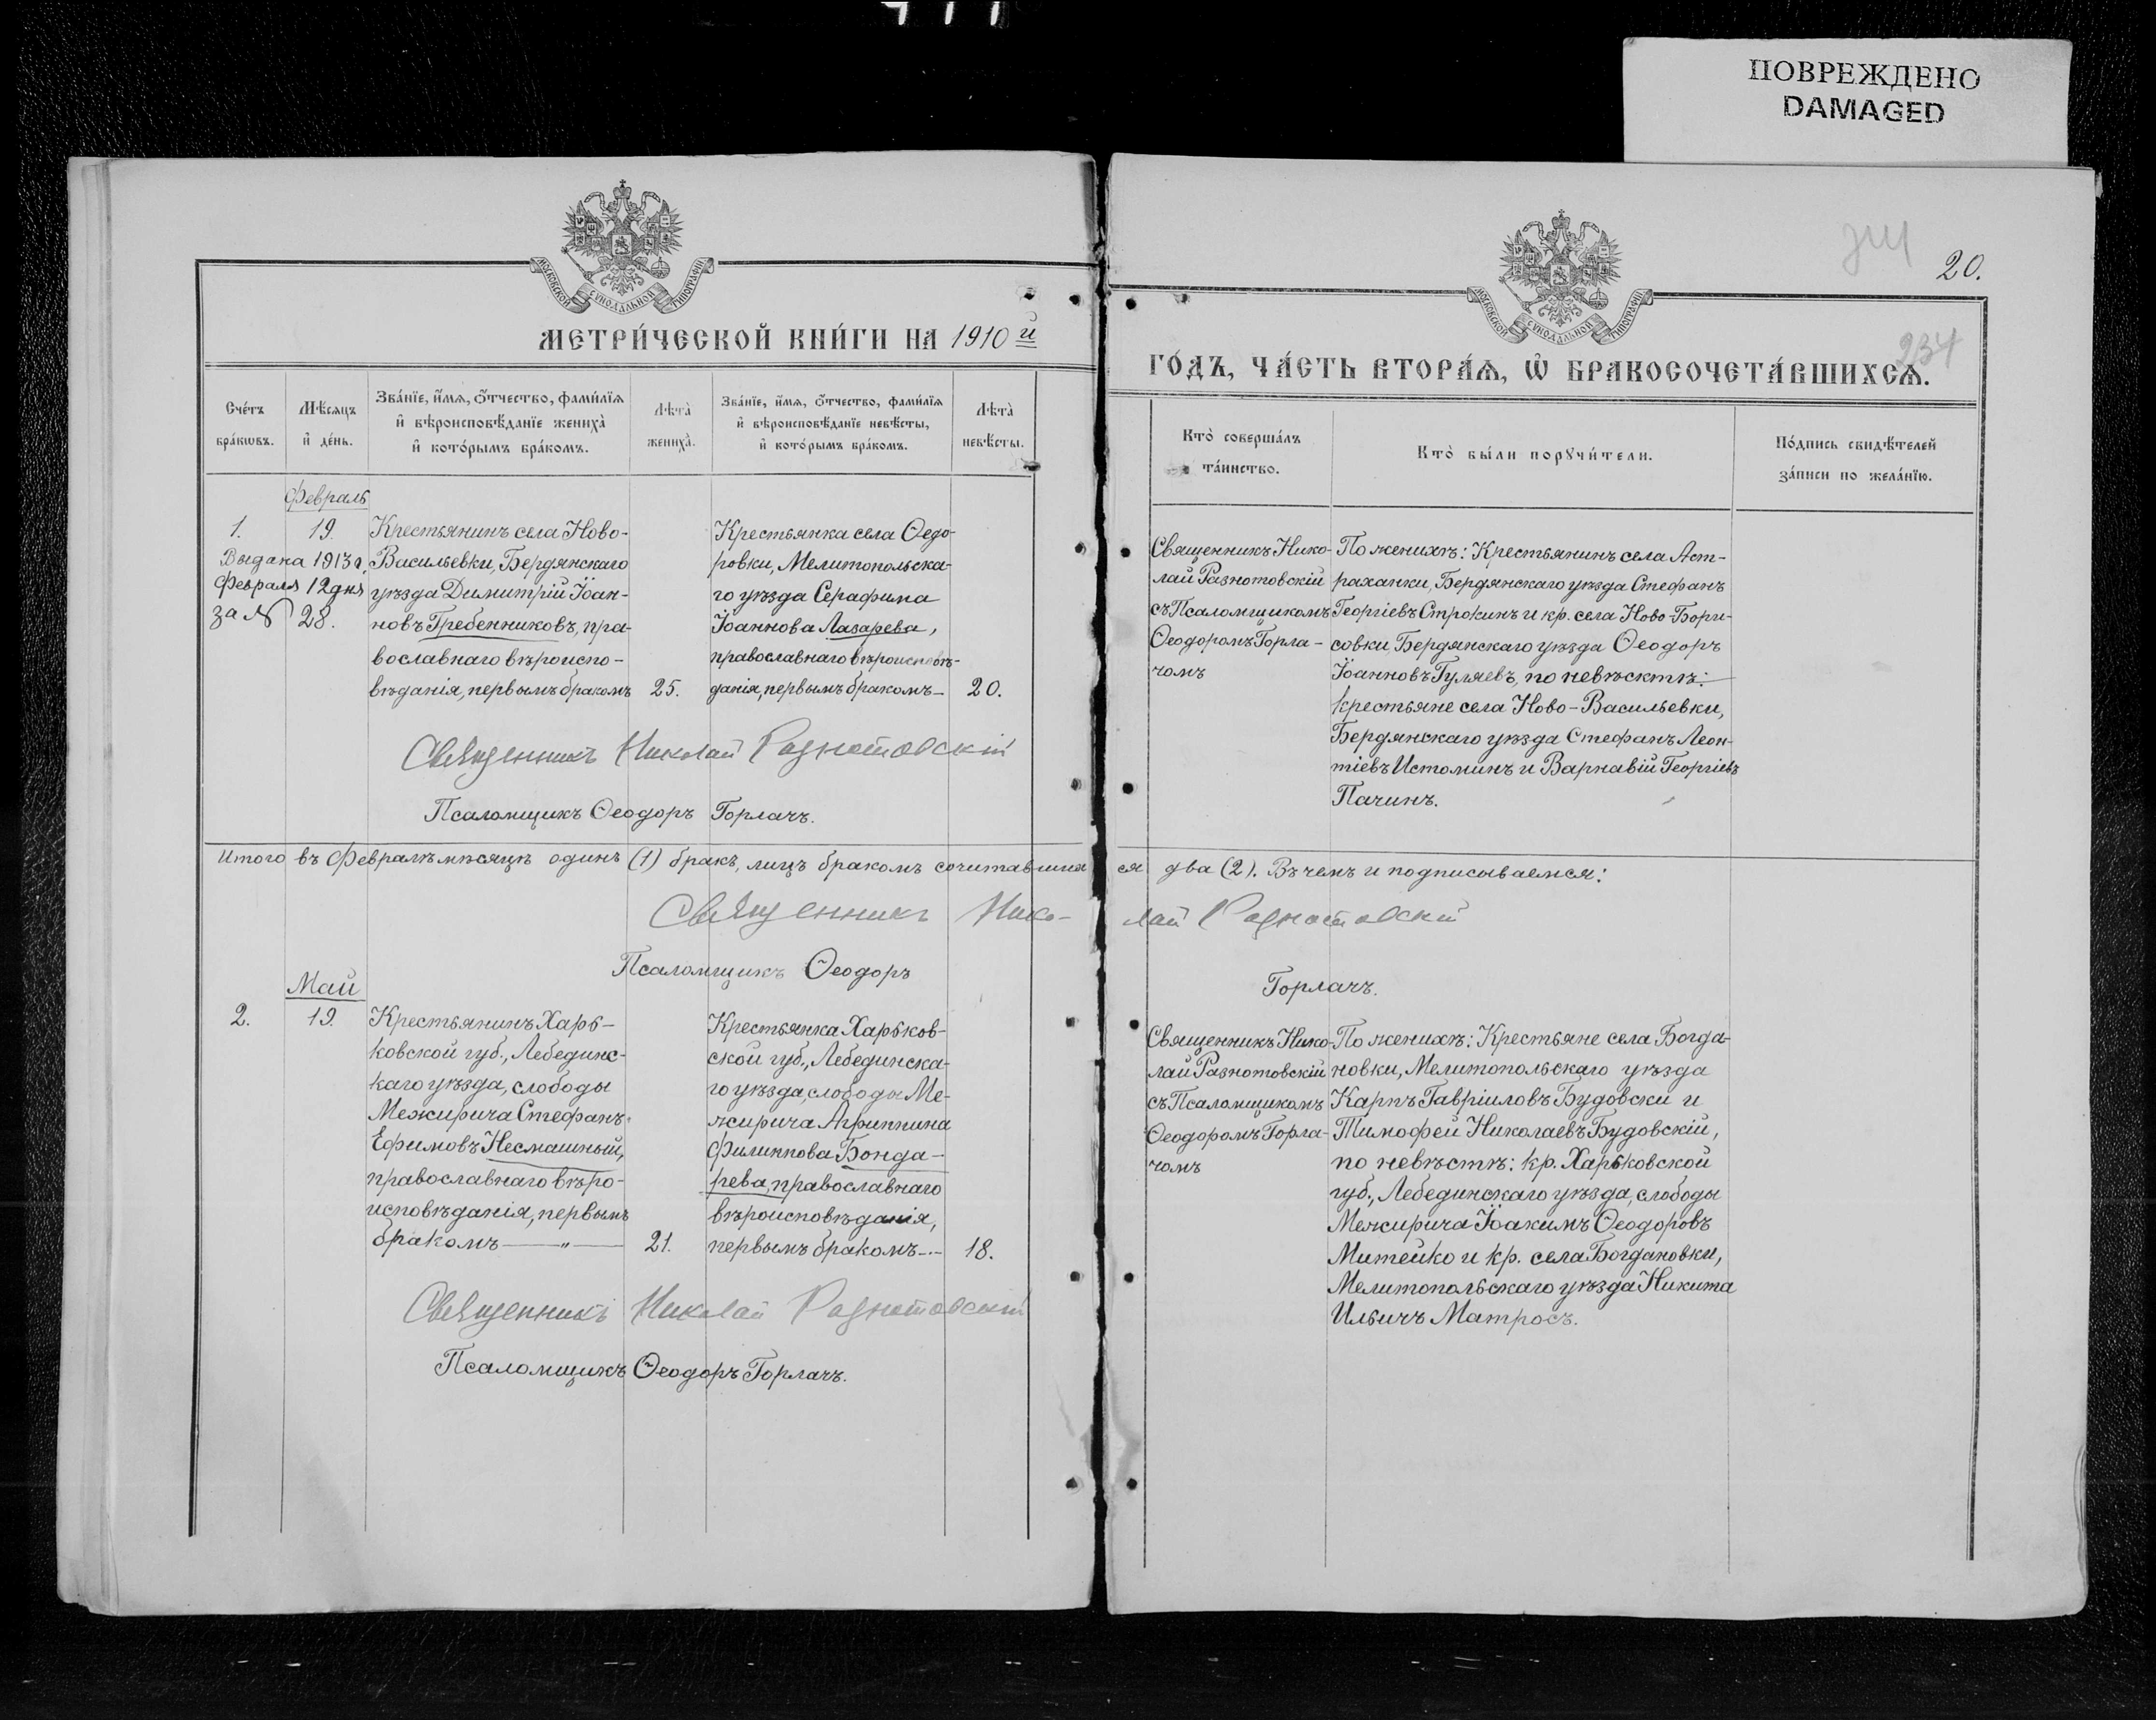 ПОВРЕЖДЕНО
DAMAGED
20.
234
МОСКОВСКОЙ СѴНОДАЛЬНОЙ ТИПОГРАФІИ
МОСКОВСКОЙ СѴНОДАЛЬНОЙ ТИПОГРАФІИ
МЕТРИ́ЧЕСКОЙ КНИ́ГИ НА 1910 й
ГО́ДЪ, ЧА́СТЬ ВТОРА́Ѧ, Ѡ҆ БРАКОСОЧЕТА́ВШИХСѦ.
Сче́тъ
бра́кѡвъ.
Мѣ́сѧцъ
и҆ де́нь.
Зва́нїе, и҆́мѧ, ѻ҆́тчество, фами́лїѧ
и҆ вѣроисповѣ́данїе жениха̀
и҆ кото́рымъ бра́комъ.
Лѣ́та̀
жениха̀.
Зва́нїе, и҆́мѧ, ѻ҆́тчество, фами́лїѧ
и҆ вѣроисповѣ́данїе невѣ́сты,
и҆ кото́рымъ бра́комъ.
Лѣ́та̀
невѣ́сты.
Кто̀ соверша́лъ
та́инство.
Кто̀ бы́ли порꙋчи́тели.
По́дпись свидѣ́телей
за́писи по жела́нїю.
Февраль
1.
19.
Выдана 1913 г.
Февраля 12 дня
за № 28.
Крестьянинъ села Ново-
Васильевки, Бердянскаго
уѣзда Димитрій Іоан-
новъ Гребенниковъ, пра-
вославнаго вѣроиспо-
вѣданія, первымъ бракомъ
25.
Крестьянка села Ѳедо-
ровки, Мелитопольска-
го уѣзда Серафима
Іоаннова Лазарева,
православнаго вѣроисповѣ-
данія, первымъ бракомъ —
20.
Священникъ Нико-
лай Разнотовскій
съ Псаломщикомъ
Ѳеодоромъ Горла-
чомъ
По женихѣ: Крестьянинъ села Аст-
раханки, Бердянскаго уѣзда Стефанъ
Георгіевъ Строкинъ и кр. села Ново-Бори-
совки, Бердянскаго уѣзда Ѳеодоръ
Іоанновъ Гуляевъ, по невѣсктѣ:
крестьяне села Ново-Васильевки,
Бердянскаго уѣзда Стефанъ Леон-
тіевъ Истоминъ и Варнавій Георгіевъ
Пачинъ.
Священникъ Николай Разнотовскій
Псаломщикъ Ѳеодоръ Горлачъ.
Итого въ Февралѣ мѣсяцѣ одинъ (1) бракъ, лицъ бракомъ сочитавшихся два (2). Въ чемъ и подписываемся:
Священникъ Николай Разнотовскій
Псаломщикъ Ѳеодоръ Горлачъ.
Май
2.
19.
Крестьянинъ Харь-
ковской губ., Лебединс-
каго уѣзда, слободы
Межирича Стефанъ
Ефимовъ Несмашный,
православнаго вѣро-
исповѣданія, первымъ
бракомъ — „ —
21.
Крестьянка Харьков-
ской губ., Лебединска-
го уѣзда, слободы Ме-
жирича Агриппина
Филиппова Бонда-
рева, православнаго
вѣроисповѣданія,
первымъ бракомъ —
18.
Священникъ Нико-
лай Разнотовскій
съ Псаломщикомъ
Ѳеодоромъ Горла-
чомъ
По женихѣ: Крестьяне села Богда-
новки, Мелитопольскаго уѣзда
Карпъ Гавріиловъ Будовски и
Тимофей Николаевъ Будовскій,
по невѣстѣ: кр. Харьковской
губ., Лебединскаго уѣзда, слободы
Межирича Іоакимъ Ѳеодоровъ
Митейко и кр. села Богдановки,
Мелитопольскаго уѣзда Никита
Ильичъ Матросъ.
Священникъ Николай Разнотовскій
Псаломщикъ Ѳеодоръ Горлачъ.